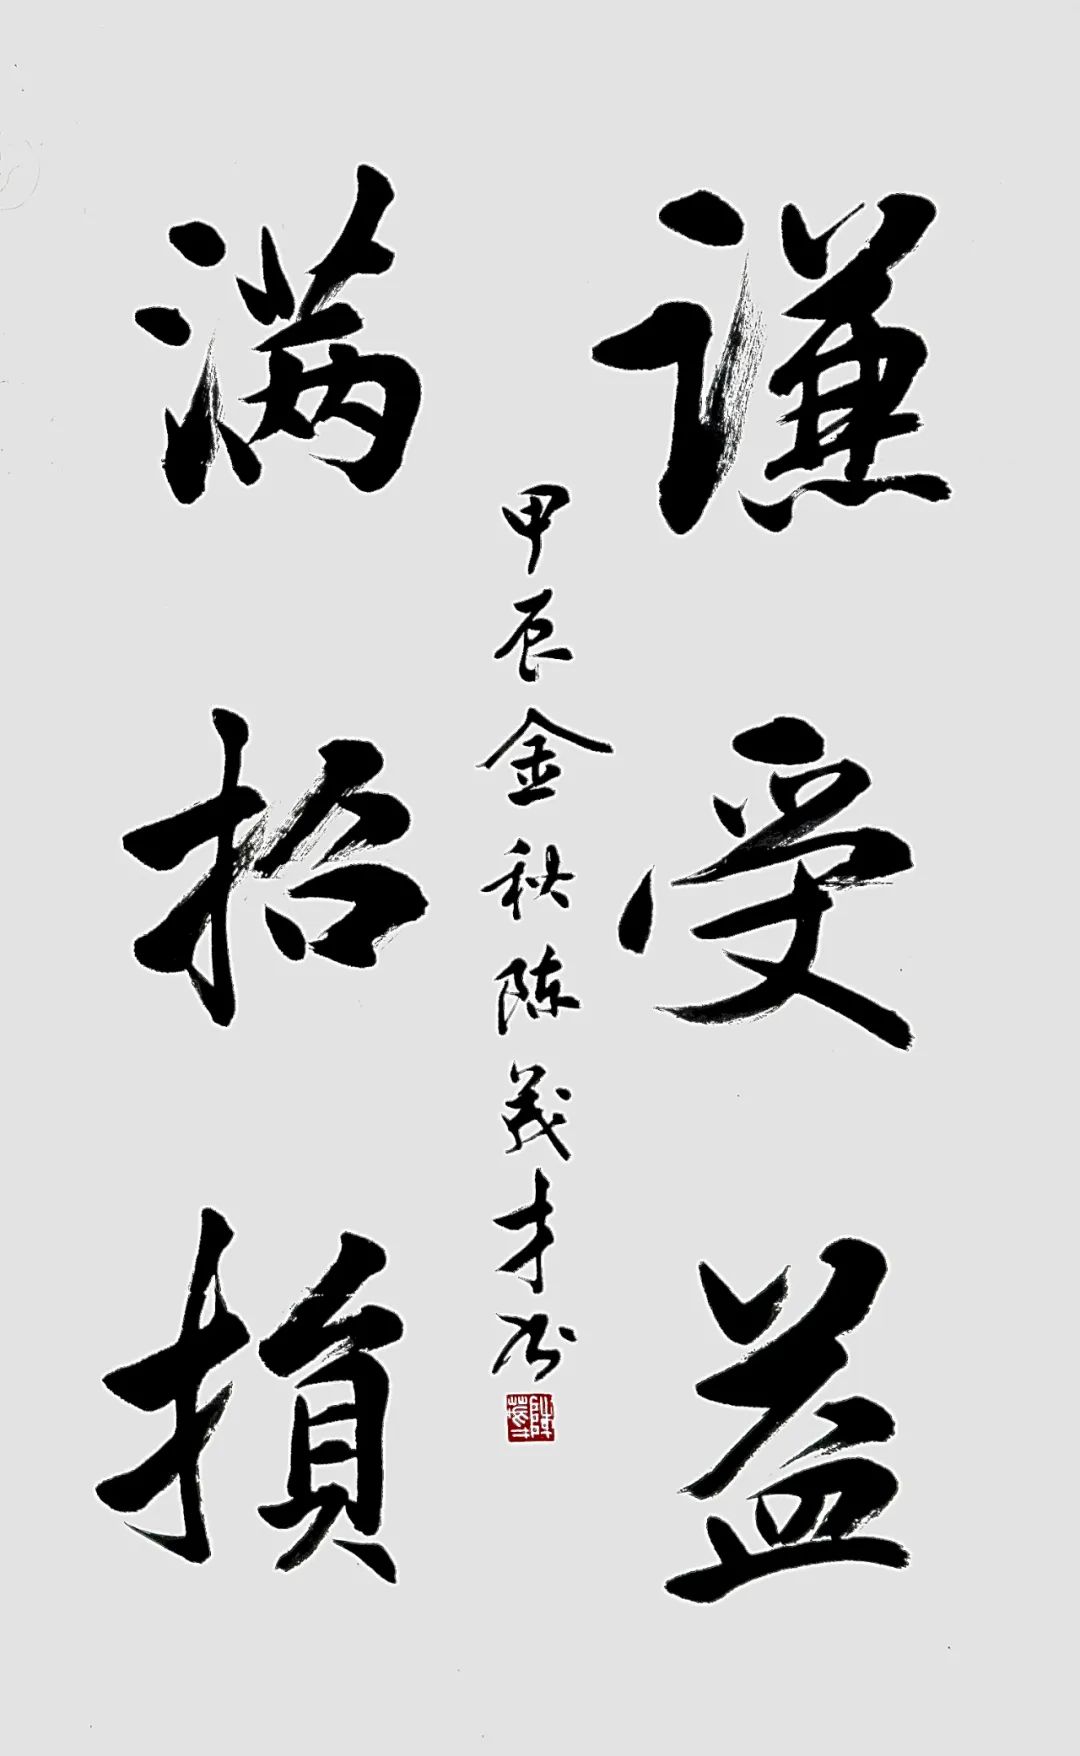 謙受益
满招損
甲辰金秋陈義才书